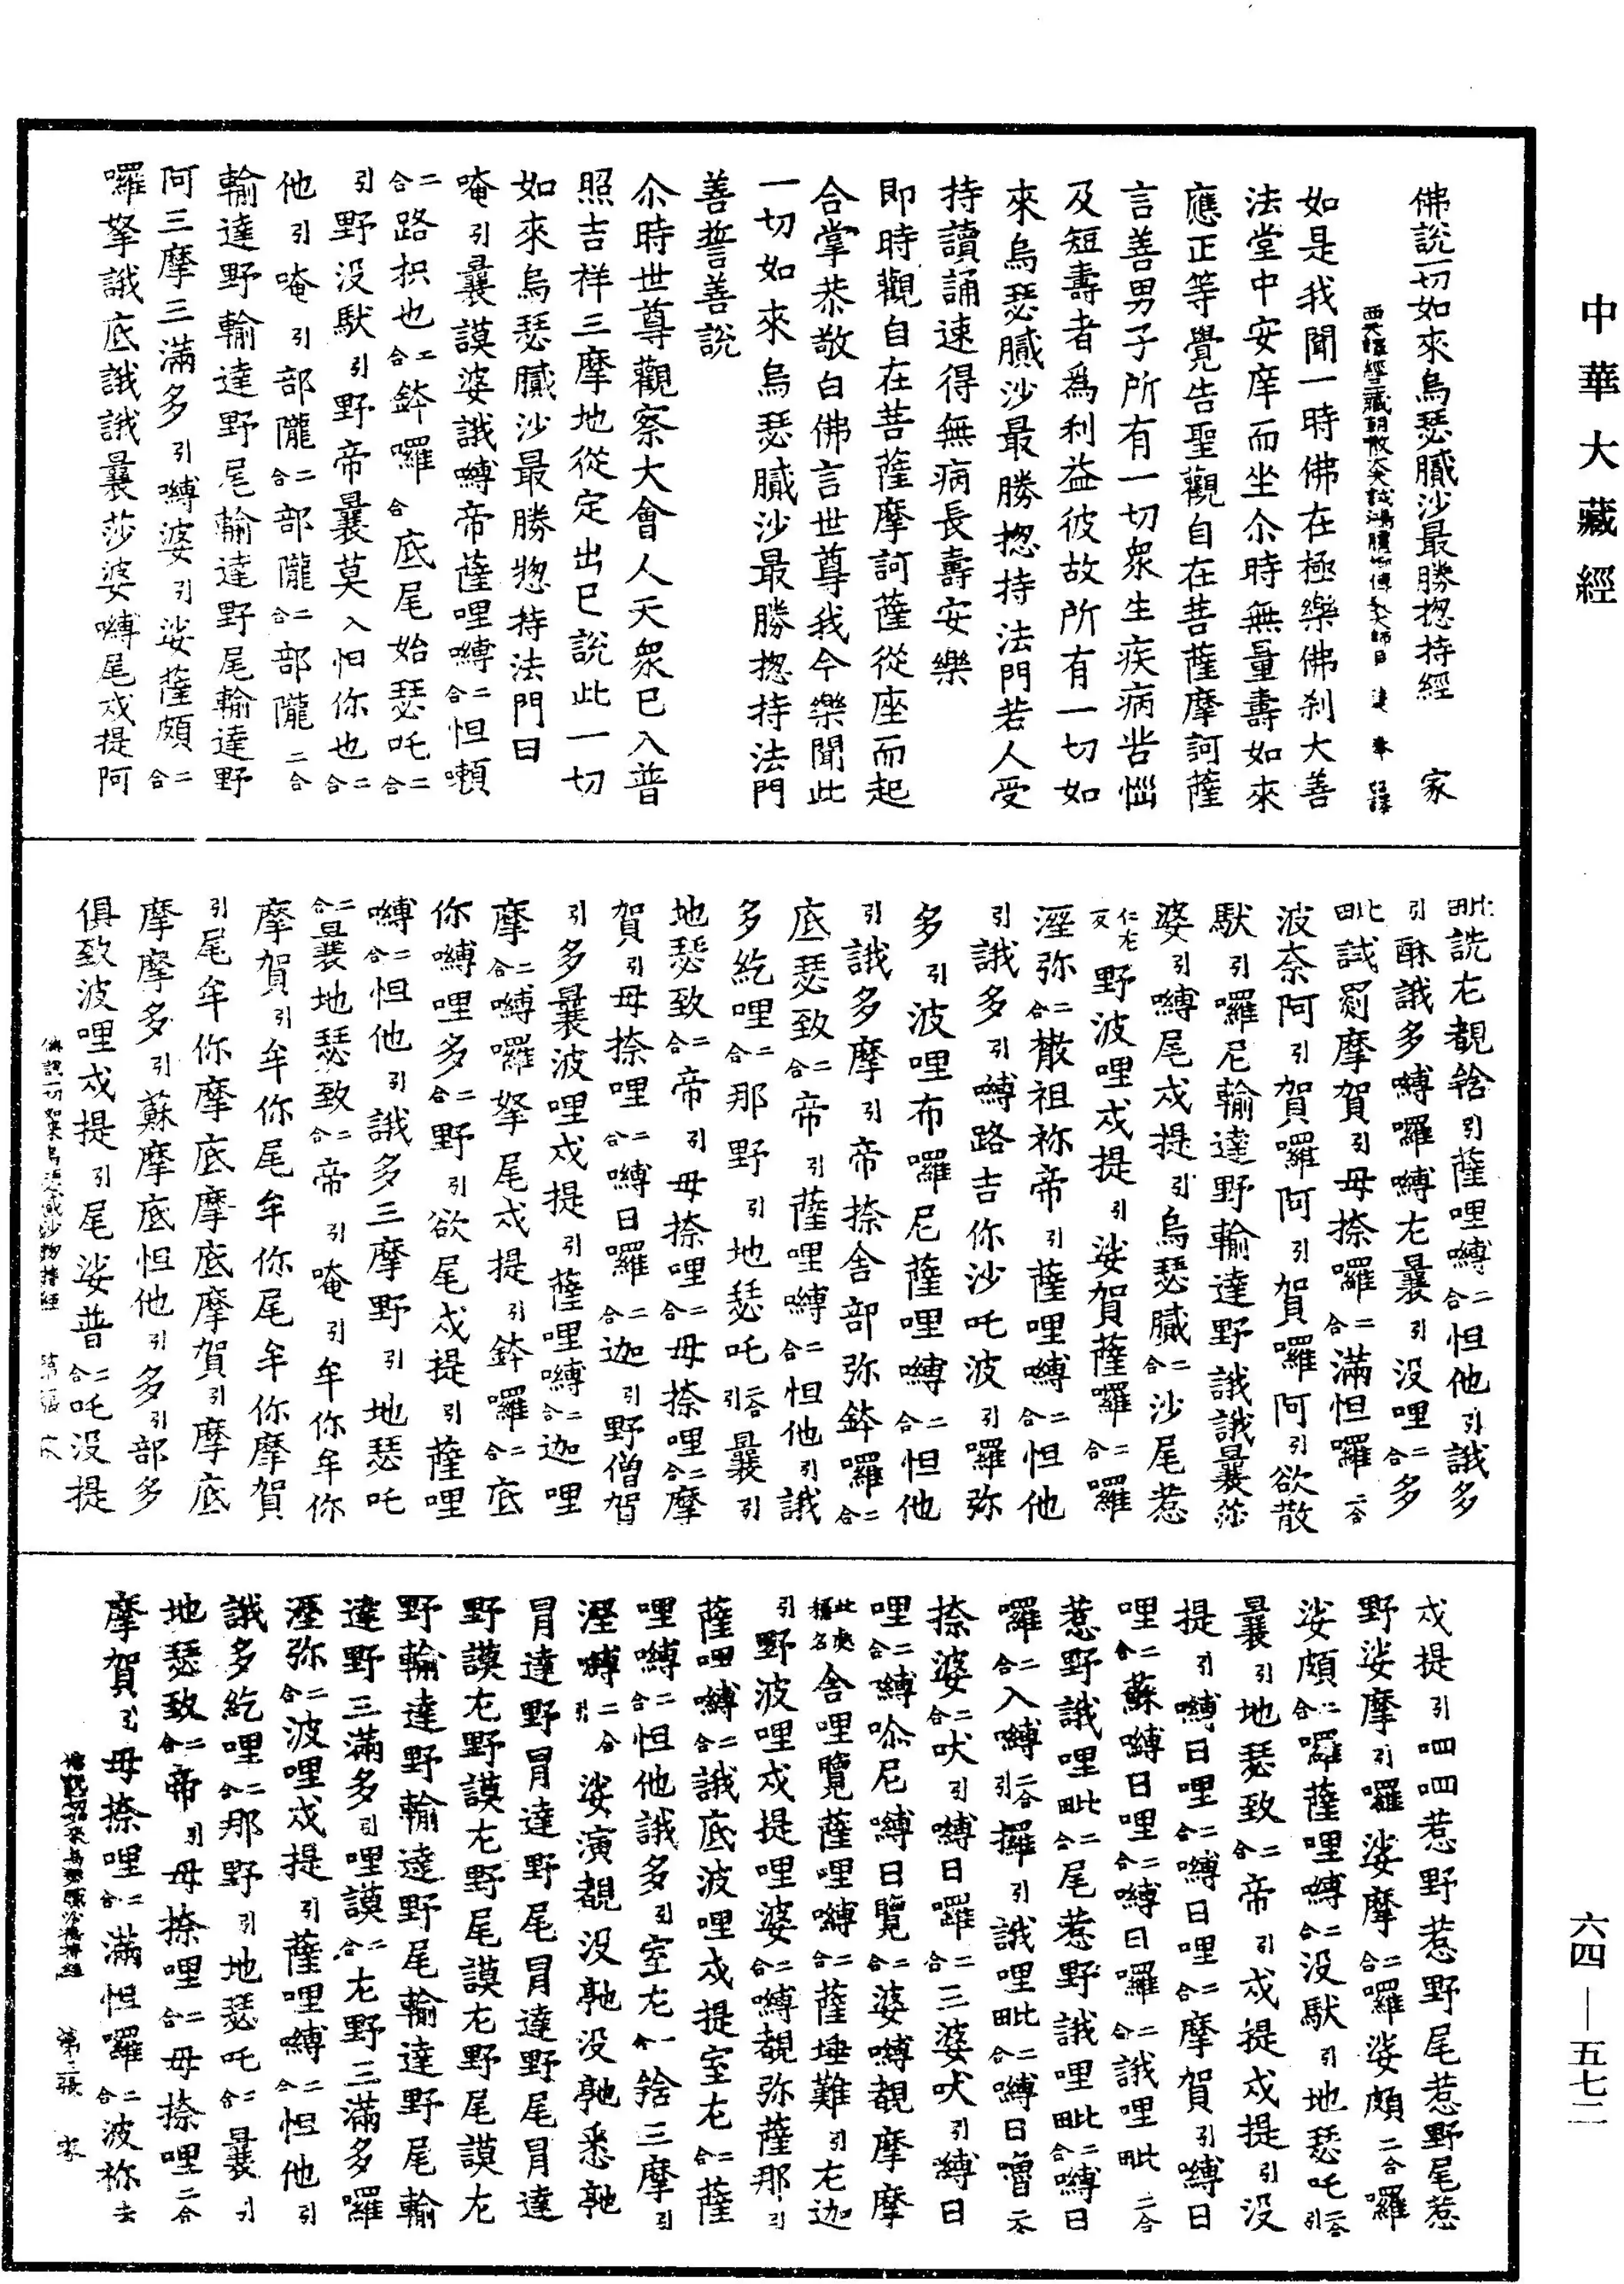 中華大藏經
佛說一切如來烏瑟膩沙最勝揔持經　家
如是我聞一時佛在極樂佛刹大善
法堂中安庠而坐尒時無量壽如來
應正等覺告聖觀自在菩薩摩訶薩
言善男子所有一切衆生疾病苦惱
及短壽者爲利益彼故所有一切如
來烏瑟膩沙最勝揔持法門若人受
持讀誦速得無病長壽安樂
即時觀自在菩薩摩訶薩從座而起
合掌恭敬白佛言世尊我今樂聞此
一切如來烏瑟膩沙最勝揔持法門
善誓善說
尒時世尊觀察大會人天衆已入普
照吉祥三摩地從定出已說此一切
如來烏瑟膩沙最勝惣持法門曰
唵引曩謨婆誐嚩帝薩哩嚩二合怛㘑
二合路枳也二合鉢囉合底尾始瑟吒二合
引野没馱引野帝曩莫入怛你也二合
他引唵引部隴二合部隴二合部隴二合
輸達野輸達野尾輸達野尾輸達野
阿三摩三滿多引嚩婆引娑薩頗二合
囉拏誐底誐誐曩莎婆嚩尾戍提阿
毗詵左覩𤚥引薩哩嚩二合怛他引誐多
引酥誐多嚩囉嚩左曩引没哩二合多
毗試罽摩賀引毋捺囉二合滿怛囉二合
波柰阿引賀囉阿引賀囉阿引欲散
馱引囉尼輸達野輸達野誐誐曩莎
婆引嚩尾戍提引烏瑟膩二合沙尾惹
仁左反野波哩戍提引娑賀薩囉二合囉
溼弥二合散祖祢帝引薩哩嚩二合怛他
引誐多引嚩路吉你沙吒波引囉弥
多引波哩布囉尼薩哩嚩二合怛他
引誐多摩引帝捺舍部弥鉢囉二合
底瑟致二合帝引薩哩嚩二合怛他引誐
多紇哩二合那野引地瑟吒二合引曩引
地瑟致二合帝引毋捺哩二合毋捺哩二合摩
賀引毋捺哩二合嚩日囉二合迦引野僧賀
引多曩波哩戍提引薩哩嚩二合迦哩
摩二合嚩囉拏尾戍提引鉢囉二合底
你嚩哩多二合野引欲尾戍提引薩哩
嚩二合怛他引誐多三摩野引地瑟吒
二合曩地瑟致二合帝引唵引牟你牟你
摩賀引牟你尾牟你尾牟你摩賀
引尾牟你摩底摩底摩賀引摩底
摩摩多引蘇摩底怛他引多引部多
俱致波哩戍提引尾娑普二合吒没提
戍提引呬呬惹野惹野尾惹野尾惹
野娑摩引囉娑摩二合囉娑頗二合囉
娑頗二合囉薩哩嚩二合没馱引地瑟吒二合引
曩引地瑟致二合帝引戍提戍提引没
提引嚩日哩二合嚩日哩二合摩賀引嚩日
哩二合蘇嚩日哩二合嚩日囉二合誐哩毗二合
惹野誐哩毗二合尾惹野誐哩毗二合嚩日
囉二合入嚩二合引攞引誐哩毗二合嚩日嚕二合
捺婆二合吠引嚩日囉二合三婆吠引嚩日
哩二合嚩日哩尼嚩日覽二合婆嚩覩摩摩
此處稱名舍哩覽薩哩嚩二合薩埵難引左迦
引野波哩戍提哩婆二合嚩覩弥薩那引
薩哩嚩二合誐底波哩戍提室左二合薩
哩嚩二合怛他誐多引室左二合𤚥三摩引
溼嚩二合引娑演覩没䭾没䭾悉䭾
冐達野冐達野尾冐達野尾冐達
野謨左野謨左野尾謨左野尾謨左
野輸達野輸達野尾輸達野尾輸
達野三滿多引哩謨二合左野三滿多囉
溼弥二合波哩戍提引薩哩嚩二合怛他引
誐多紇哩二合那野引地瑟吒二合曩引
地瑟致二合帝引毋捺哩二合毋捺哩二合
摩賀引毋捺哩二合滿怛囉二合波祢去
六四—五七二